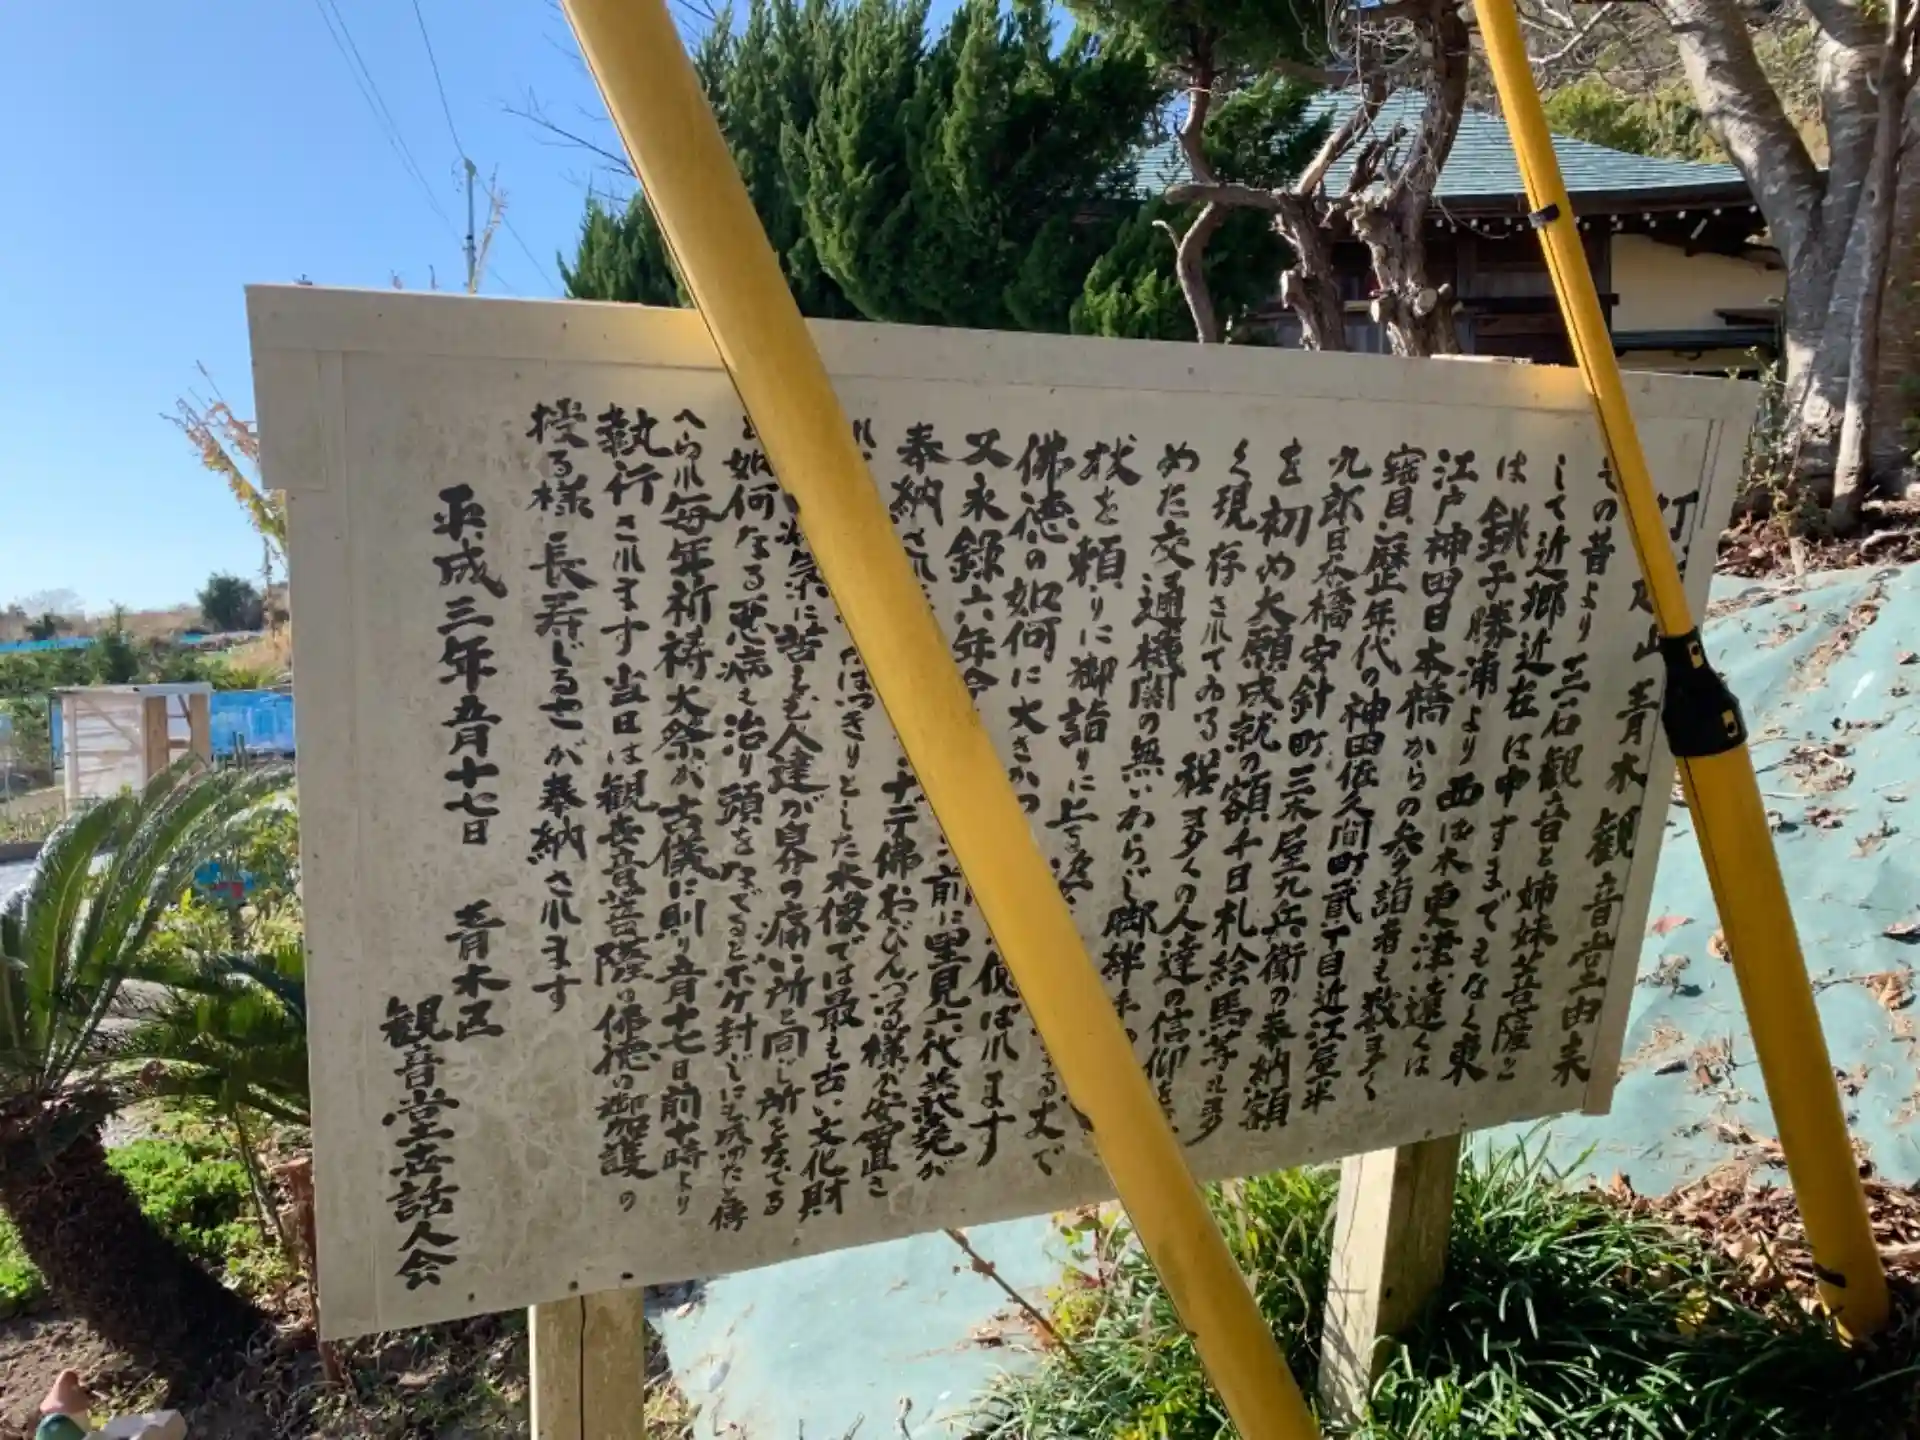 山 青木観音堂由来
その昔より三石観音と姉妹菩薩と
して近郷近在は申すまでもなく東
は銚子勝浦より西は木更津遠くは
江戸神田日本橋からの参詣者も数多く
宝暦年代の神田佐久間町貮丁目近江屋半
九郎日本橋安針町三木屋九兵衛の奉納額
を初め大願成就の額千日札絵馬等も多
く現存されてゐる程多くの人達の信仰を
めた交通機関の無いわらじ脚絆
杖を頼りに御詣りに上る
佛徳の如何に大きかつ
又永録六年 前に里見六代義堯が
奉納 十二佛おびんづる様が安置さ
はつきりとした木像では最も古い文化財
病気に苦しむ人達が自分の痛い所と同じ所をなでる
と如何なる悪病も治り頭をなでるとボケ封じにも成つたと傳
へられ毎年祈祷大祭が古儀に則り五月十七日前十時より
執行されます当日は観世音菩薩の佛徳の御加護の
授る様長寿じるこが奉納されます
平成三年五月十七日
青木区
観音堂世話人会